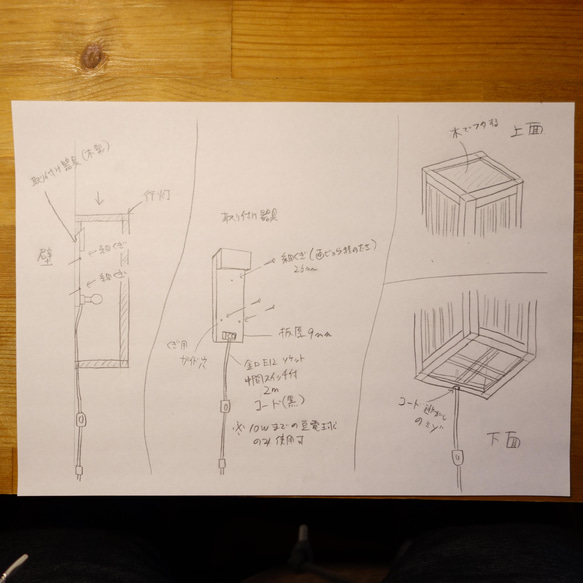 取り付け器具(木製)
行灯
壁
←細くぎ
←細くぎ
取り付け器具
細くぎ(画びょう
25mm
くぎ用
ガイド穴
板厚9mm
口金E12ソケット
中間スイッチ付
2m
コード(黒)
※10Wまでの豆電球
のみ使用可
木でつくる
上面
コード逃がし
のミゾ
下面